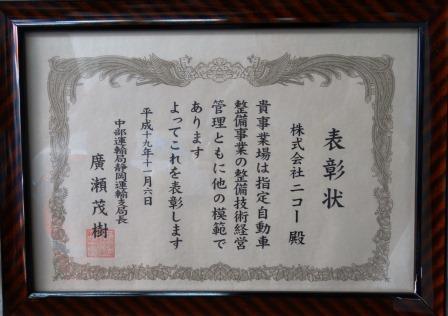 表彰状
株式会社ニコー殿
貴事業場は指定自動車
整備事業の整備技術経営
管理ともに他の模範で
あります
よってこれを表彰します
平成十九年十一月六日
中部運輸局静岡運輸支局長
廣瀬茂樹